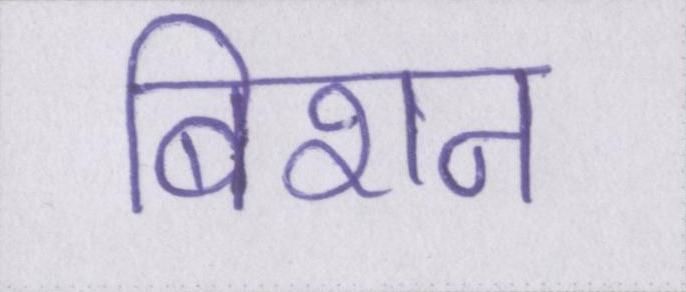 बिशन